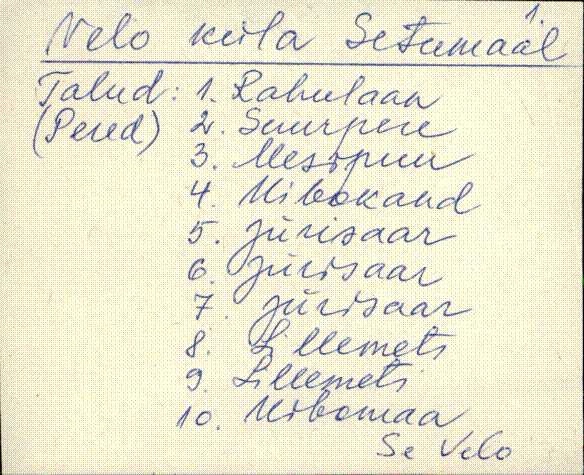 1.
Nelo küla Setumaal
Talud: 1. Rahulaan
(Pered) 2. Suurpere
3. Mesipuu
4. Kibokand
5. Jürisaar
6. Jürisaar
7. Jürisaar
8. Lillemets
9. Lillemets
10. Kibomaa
Se Velo